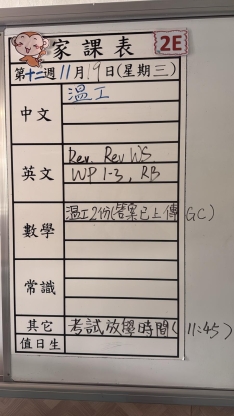 家課表 2E
第十二週 11月19日(星期三)
中文 温工
英文 Rex. Rev WS
WP 1-3, RB
數學 温工2份(答案已上傳GC)
常識
其它 考試放學時間(11:45)
值日生